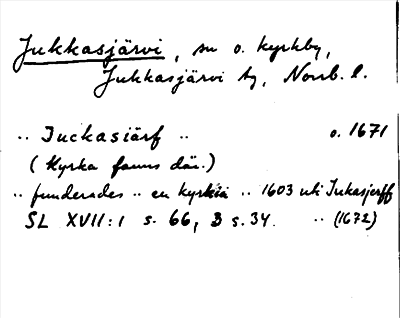 Jukkasjärvi, sn o. kyrkby,
Jukkasjärvi tg, Norrb. l.
.. Juckasiärf .. o. 1671
(Kyrka fanns där.)
.. funderades .. en kyrkia .. 1603 uti Jukasjerff
SL XVII:1 s. 66, B s. 34. .. (1672)